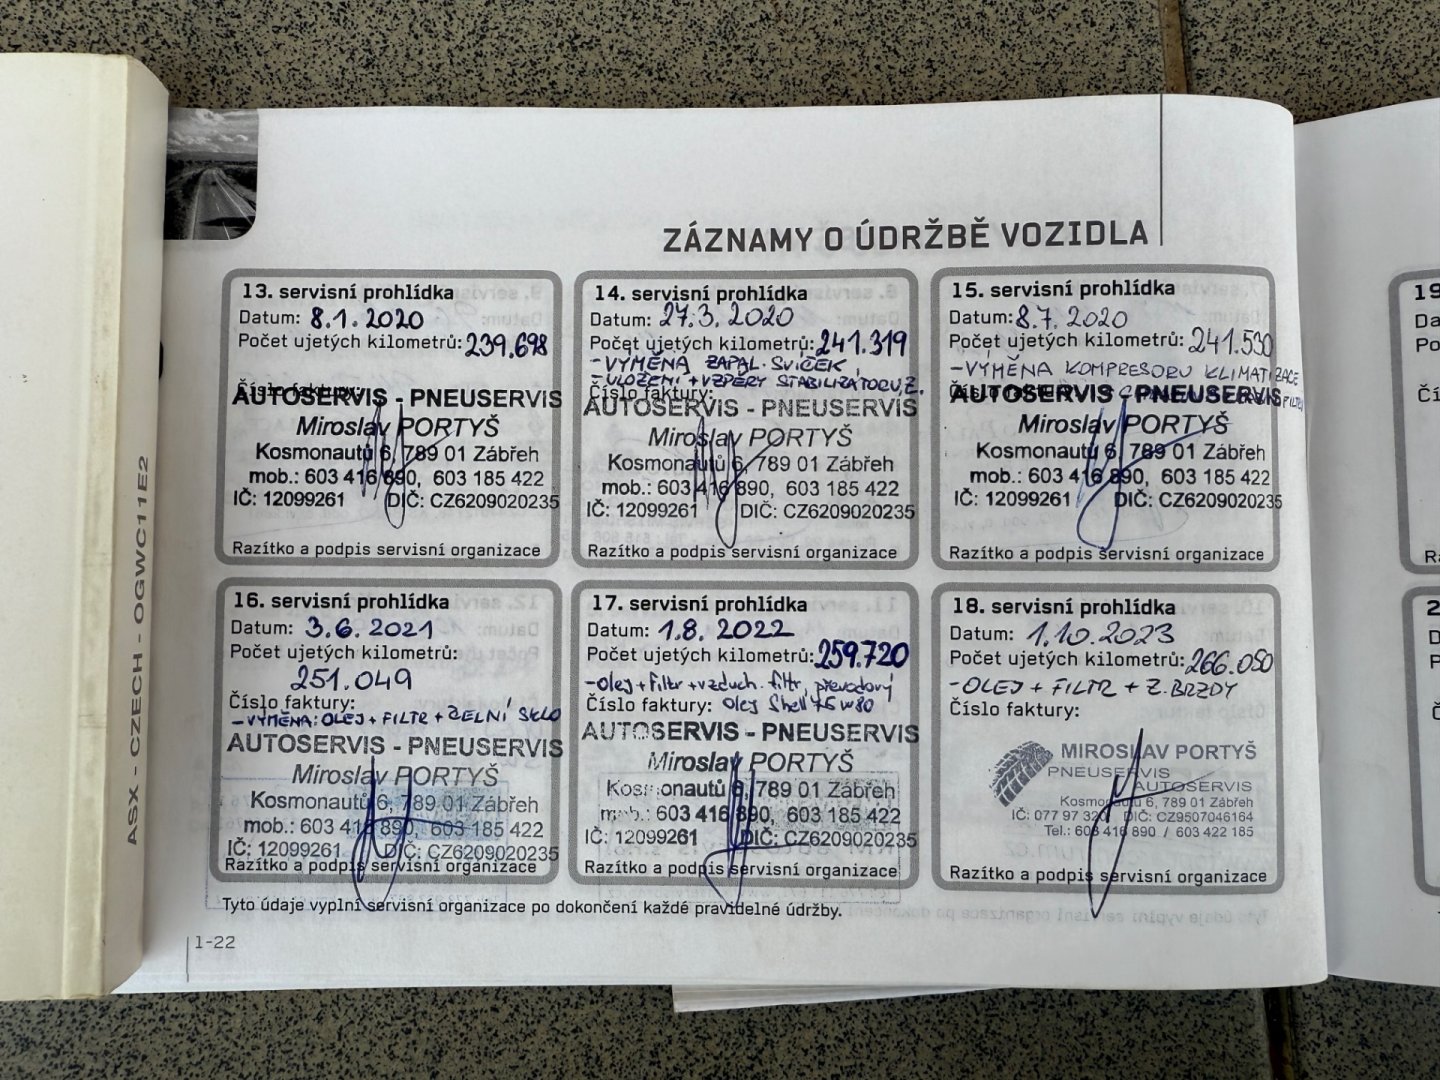 ZÁZNAMY O ÚDRŽBĚ VOZIDLA
13. servisní prohlídka
Datum: 8.1.2020
Počet ujetých kilometrů: 239.698
Číslo faktury:
AUTOSERVIS - PNEUSERVIS
Miroslav PORTYŠ
Kosmonautů 6, 789 01 Zábřeh
mob.: 603 416 890, 603 185 422
IČ: 12099261 DIČ: CZ6209020235
Razítko a podpis servisní organizace
14. servisní prohlídka
Datum: 27.3.2020
Počet ujetých kilometrů: 241.319
- VÝMĚNA ZAPAL. SVÍČEK,
- ULOŽENÍ + VZPĚRY STABILIZÁTORU Z.
Číslo faktury:
AUTOSERVIS - PNEUSERVIS
Miroslav PORTYŠ
Kosmonautů 6, 789 01 Zábřeh
mob.: 603 416 890, 603 185 422
IČ: 12099261 DIČ: CZ6209020235
Razítko a podpis servisní organizace
15. servisní prohlídka
Datum: 8.7.2020
Počet ujetých kilometrů: 241.530
- VÝMĚNA KOMPRESORU KLIMATIZACE
AUTOSERVIS - PNEUSERVIS
Miroslav PORTYŠ
Kosmonautů 6, 789 01 Zábřeh
mob.: 603 416 890, 603 185 422
IČ: 12099261 DIČ: CZ6209020235
Razítko a podpis servisní organizace
16. servisní prohlídka
Datum: 3.6.2021
Počet ujetých kilometrů:
251.049
Číslo faktury:
- VÝMĚNA: OLEJ + FILTR + ČELNÍ SKLO
AUTOSERVIS - PNEUSERVIS
Miroslav PORTYŠ
Kosmonautů 6, 789 01 Zábřeh
mob.: 603 416 890, 603 185 422
IČ: 12099261 DIČ: CZ6209020235
Razítko a podpis servisní organizace
17. servisní prohlídka
Datum: 1.8.2022
Počet ujetých kilometrů: 259.720
- olej + filtr + vzduch. filtr, převodový
Číslo faktury: olej Shell 75W80
AUTOSERVIS - PNEUSERVIS
Miroslav PORTYŠ
Kosmonautů 6, 789 01 Zábřeh
mob.: 603 416 890, 603 185 422
IČ: 12099261 DIČ: CZ6209020235
Razítko a podpis servisní organizace
18. servisní prohlídka
Datum: 1.10.2023
Počet ujetých kilometrů: 266.050
- OLEJ + FILTR + Z. BRZDY
Číslo faktury:
MIROSLAV PORTYŠ
PNEUSERVIS
AUTOSERVIS
Kosmonautů 6, 789 01 Zábřeh
IČ: 077 97 320 DIČ: CZ9507046164
Tel.: 603 416 890 / 603 422 185
Razítko a podpis servisní organizace
Tyto údaje vyplní servisní organizace po dokončení každé pravidelné údržby.
1-22
ASX - CZECH - OGWC11E2